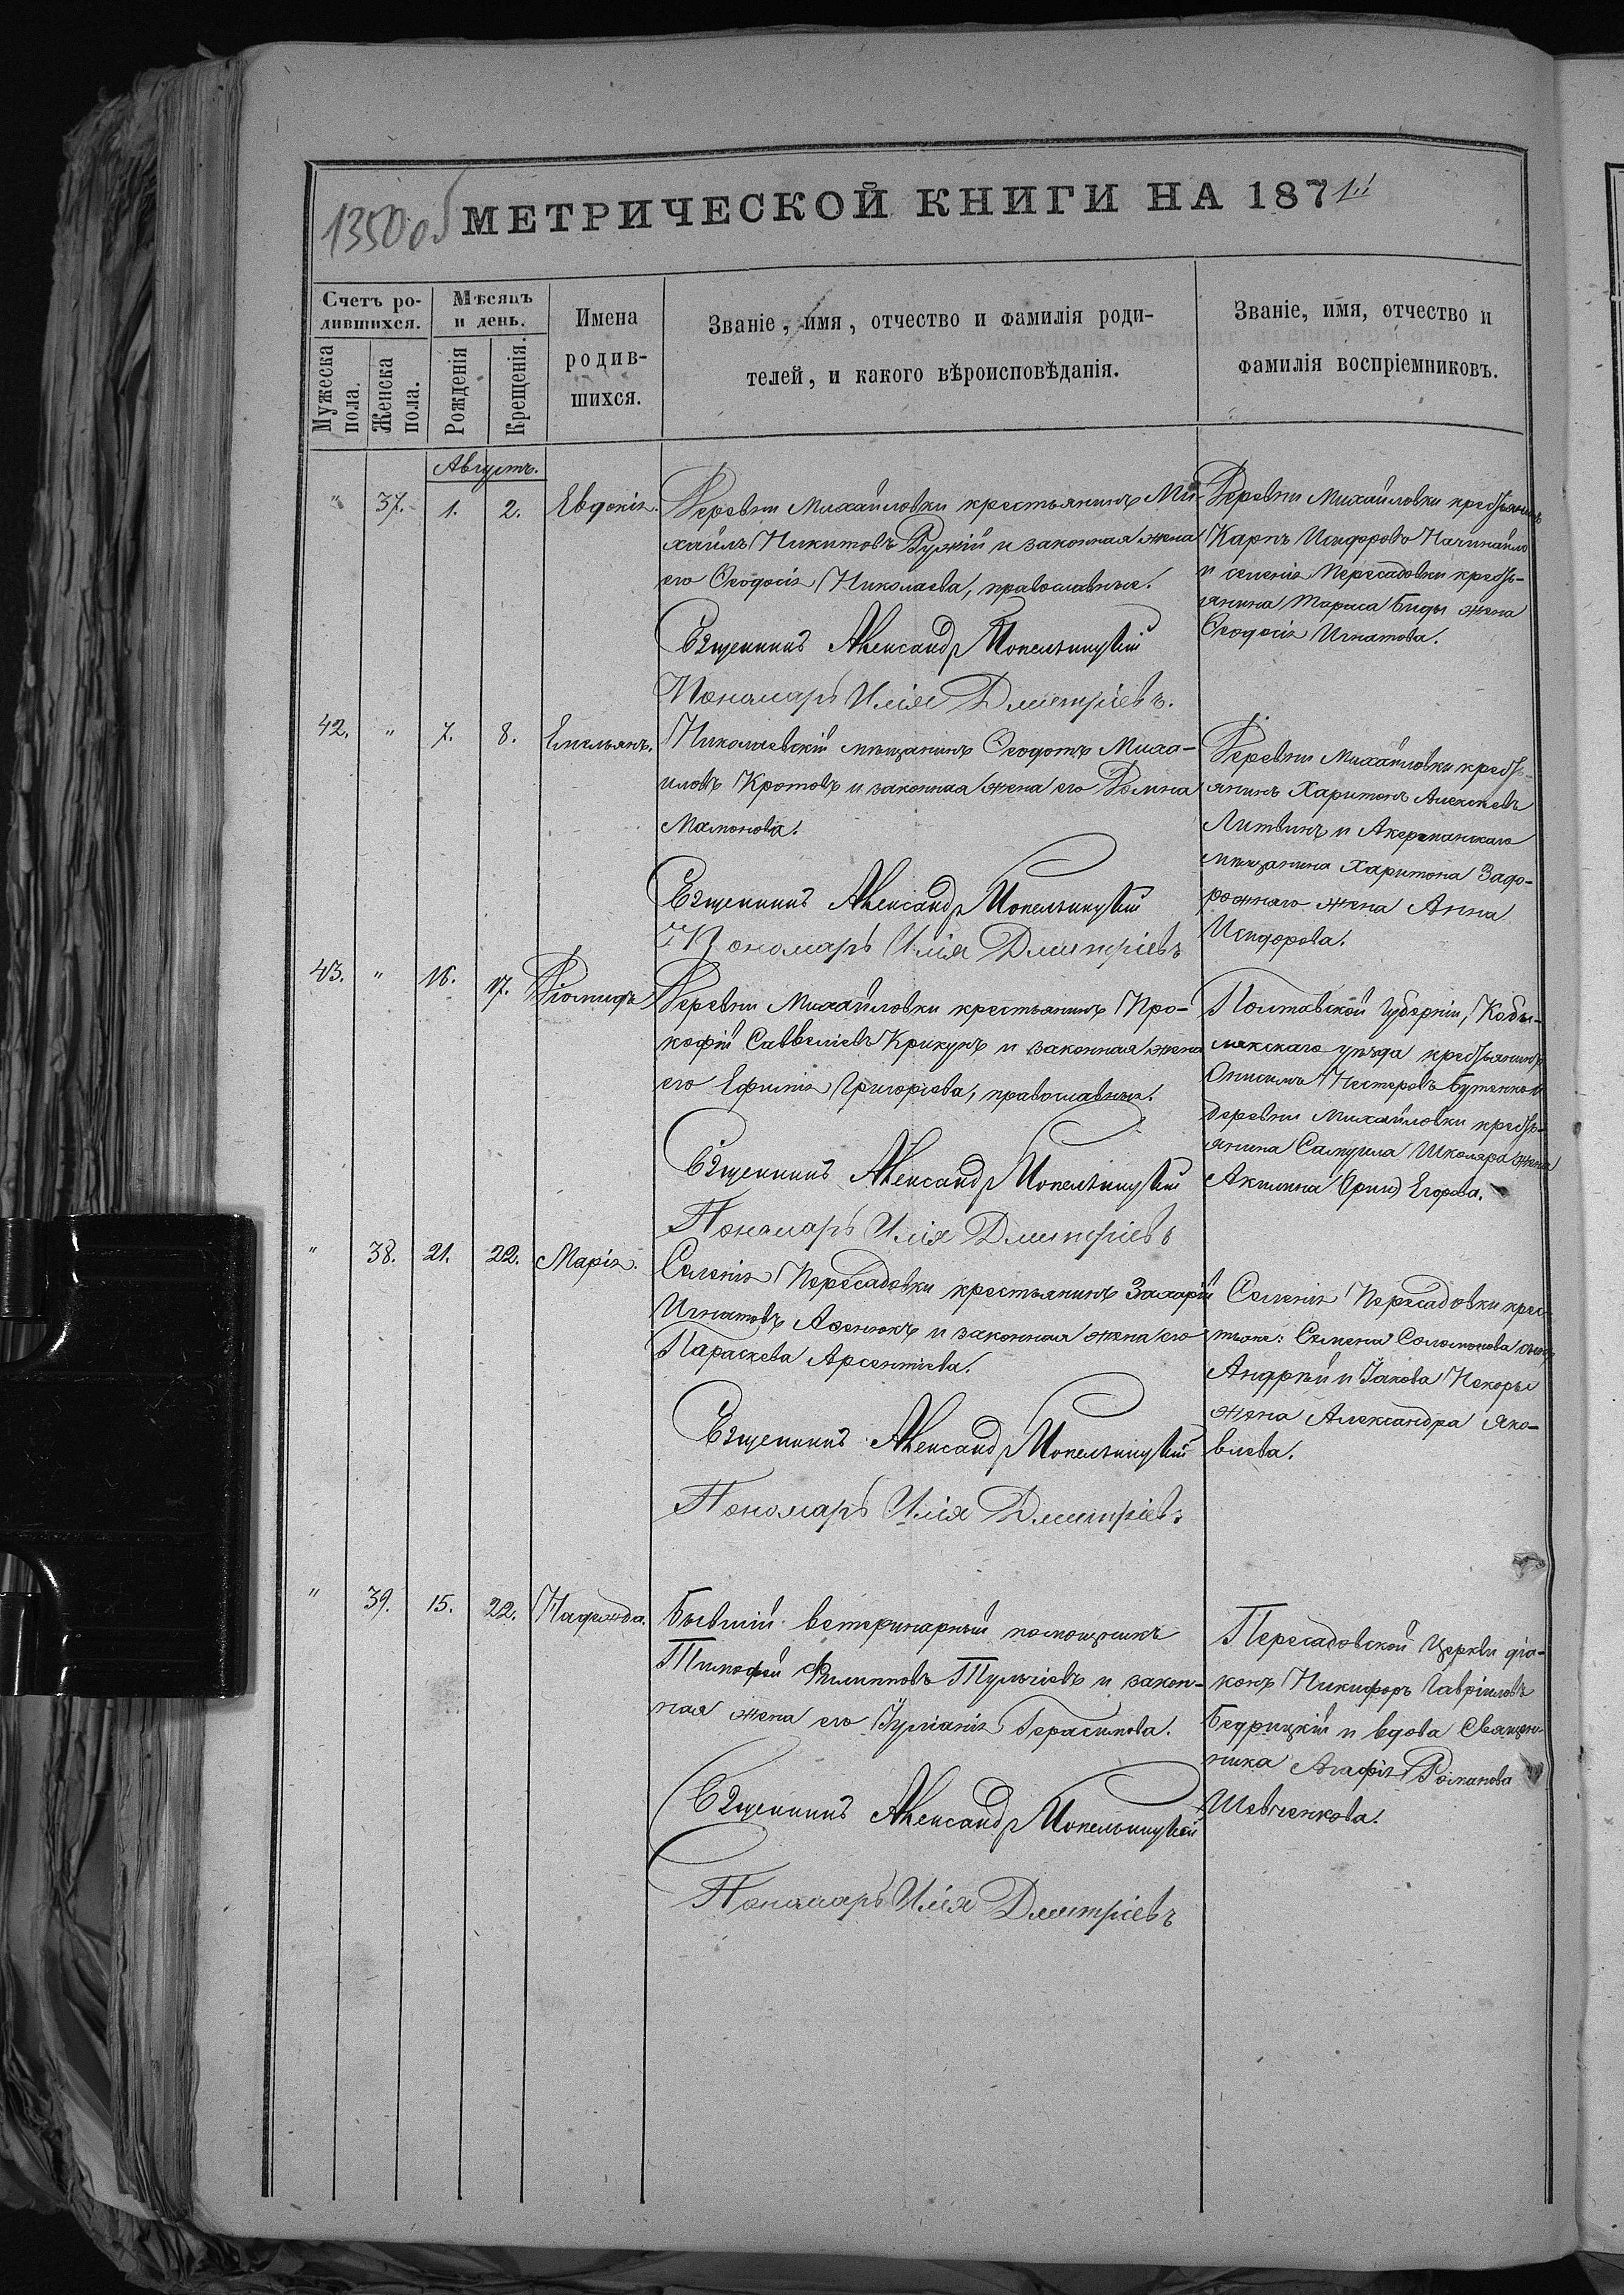 1350 об
МЕТРИЧЕСКОЙ КНИГИ НА 1871й
Счетъ ро-
дившихся.
Мужеска
пола.
Женска
пола.
Мѣсяцъ
и день.
Рожденія
Крещенія.
Имена
родив-
шихся.
Званіе, имя, отчество и фамилія роди-
телей, и какого вѣроисповѣданія.
Званіе, имя, отчество и
фамилія воспріемниковъ.
Августъ.
" 37. 1. 2. Евдокія.
Деревни Михайловки крестьянинъ Ми-
хаилъ Никитовъ Ружій и законная жена
его Ѳеодосія Николаева, православные.
Священникъ Александръ
Пономарь Илія Димитріевъ.
Деревни Михайловки крестьянинъ
Карпъ Исидоровъ
и селенія Пересадовки кресть-
янина Тараса Биды жена
Ѳеодосія Игнатова.
42. " 7. 8. Емельянъ.
Николаевскій мѣщанинъ Ѳеодотъ Миха-
иловъ Кротовъ и законная жена его Домна
Мамонова.
Священникъ Александръ
Пономарь Илія Димитріевъ
Деревни Михайловки кресть-
янинъ Харитонъ Алексѣевъ
Литвинъ и Акерманскаго
мѣщанина Харитона Задо-
рожнаго жена Анна
Исидорова.
43. " 16. 17. Діомидъ
Деревни Михайловки крестьянинъ Про-
кофій Савеліевъ Крикунъ и законная жена
его Ефимія Григорьева, православные.
Священникъ Александръ
Пономарь Илія Димитріевъ
Полтавской Губерніи, Кобы-
лякскаго уѣзда крестьянинъ
Онисимъ Нестеровъ Бутенко и
деревни Михайловки кресть-
янина Самуила Школяра жена
Акилина (Григ) Егорова.
" 38. 21. 22. Марія.
Селенія Пересадовки крестьянинъ Захарій
Игнатовъ Аѳенюкъ и законная жена его
Параскева Арсентіева.
Священникъ Александръ
Пономарь Илія Димитріевъ
Селенія Пересадовки крес-
тьяне: Семена Соломонова сынъ
Андрей и Іакова Некоры
жена Александра Яко-
влева.
" 39. 15. 22. Надежда.
Бывшій ветеринарный помощникъ
Тимофей Филипповъ и закон-
ная жена его Іуліанія Герасимова.
Священникъ Александръ
Пономарь Илія Димитріевъ
Пересадовской Церкви діа-
конъ Никифоръ Гавріиловъ
Бедрицкій и вдова Священ-
ника Агафія Романова
Шевченкова.